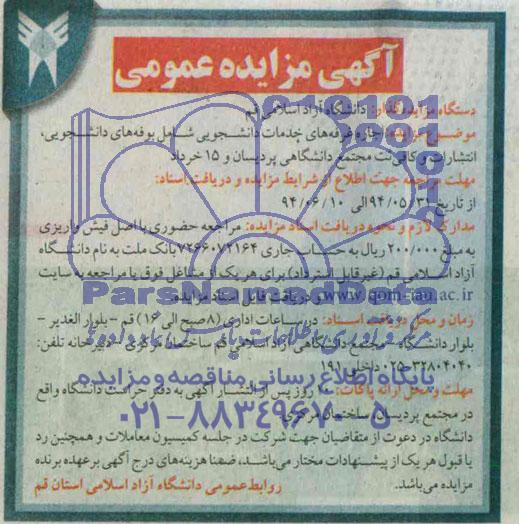 آگهی مزایده عمومی
دستگاه مزایده گذار: دانشگاه آزاد اسلامی قم
موضوع مزایده: اجاره غرفه‌های خدمات دانشجویی شامل بوفه‌های دانشجویی،
انتشارات و کافی‌نت مجتمع دانشگاهی پردیسان و ۱۵ خرداد
مهلت مراجعه جهت اطلاع از شرایط مزایده و دریافت اسناد:
از تاریخ ۹۴/۰۵/۳۱ الی ۹۴/۰۶/۱۰
مدارک لازم و نحوه دریافت اسناد مزایده: مراجعه حضوری با اصل فیش واریزی
به مبلغ ۲۰۰/۰۰۰ ریال به حساب جاری ۷۲۶۶۰۷۲۱۶۴ بانک ملت به نام دانشگاه
آزاد اسلامی قم (غیرقابل استرداد) برای هر یک از مشاغل فوق یا مراجعه به سایت
www.qom-iau.ac.ir و دریافت فایل اسناد مزایده.
زمان و محل دریافت اسناد: در ساعات اداری (۸ صبح الی ۱۶) قم - بلوار الغدیر -
بلوار دانشگاه - مجتمع دانشگاهی آزاد اسلامی قم ساختمان مرکزی - دبیرخانه تلفن:
۰۲۵-۳۲۸۰۴۰۴۰ داخلی ۱۹۱
مهلت و محل ارائه پاکات: روز پس از انتشار آگهی به دفتر حراست دانشگاه واقع
در مجتمع پردیسان ساختمان مرکزی.
دانشگاه در دعوت از متقاضیان جهت شرکت در جلسه کمیسیون معاملات و همچنین رد
یا قبول هر یک از پیشنهادات مختار می‌باشد، ضمنا هزینه‌های درج آگهی بر عهده برنده
مزایده می‌باشد.
روابط عمومی دانشگاه آزاد اسلامی استان قم
ParsNamadData
پایگاه اطلاع رسانی مناقصه و مزایده
۰۲۱-۸۸۳۴۹۶۷۰-۵